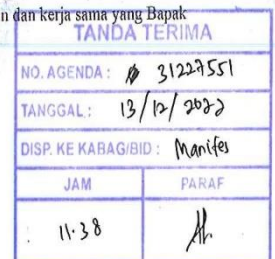 n dan kerja sama yang Bapak
TANDA TERIMA
NO. AGENDA : 31227551
TANGGAL : 13/12/2022
DISP. KE KABAG/BID : Manifes
JAM PARAF
11.38